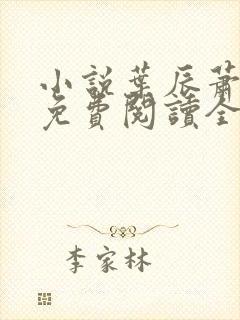 小說葉辰蕭
免費閱讀全
李家林